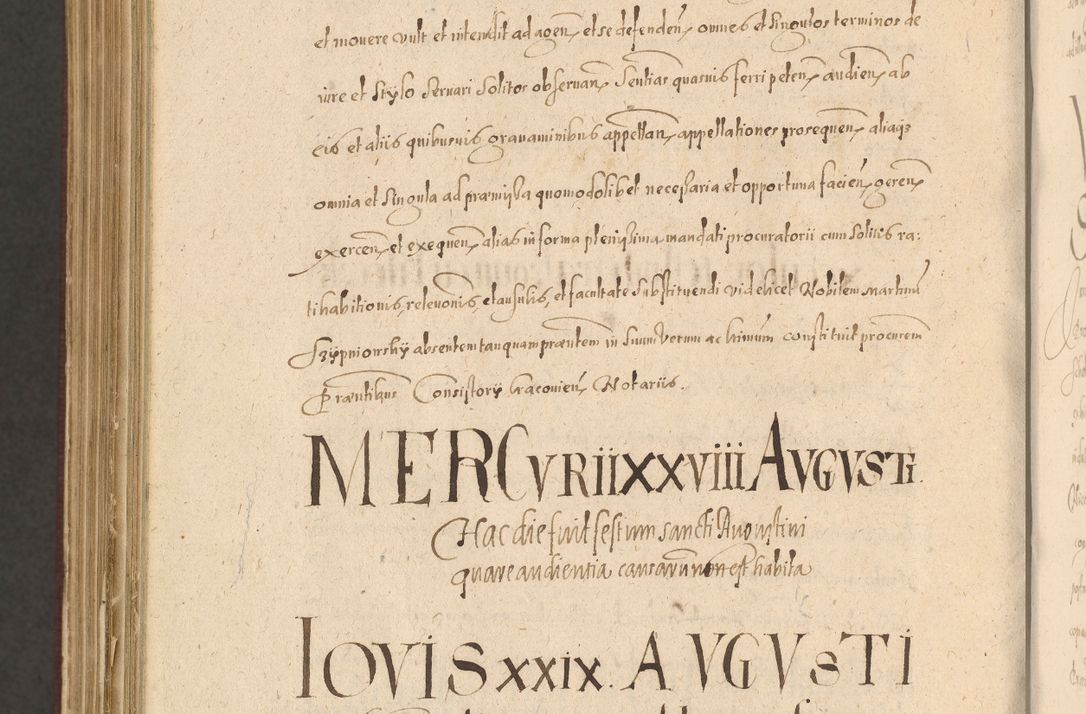 et movere vult et intendit ad agen, et se defenden, omnes et singulos terminos de
iure et stÿlo servari solitos observan, sentias quasvis ferri peten, audien, ab
eis et aliis quibusvis gravaminibus appellan, appellationes prosequen, aliaq3
omnia et singula ad præmissa quomodolibet necessaria et opportuna facien, geren,
exercen, et exequen, alias in forma plenissima mandati procuratorii cum solitis ra:
tihabitionis, relevonis, clausulis, et facultate substituendi videlicet Nobilem Martinu
Szÿpniowskÿ absentem tanquam præntem in suum verum ac ltimum constituit procurem
Præntibus Consistorÿ Cracovien, Notariis.
MERCVRII XXVIII AVGVSTI.
Hac die fuit festum sancti Augustini
quare audientia causarum non est habita
IOVIS XXIX. AVGVSTI